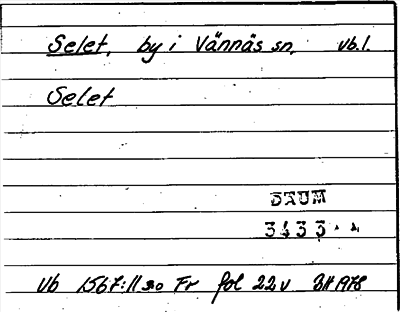 Selet, by i Vännäs sn. vb.l.
Selet
DAUM
3433
Vb 1567:11 so Fr fol 22 v BH 1978